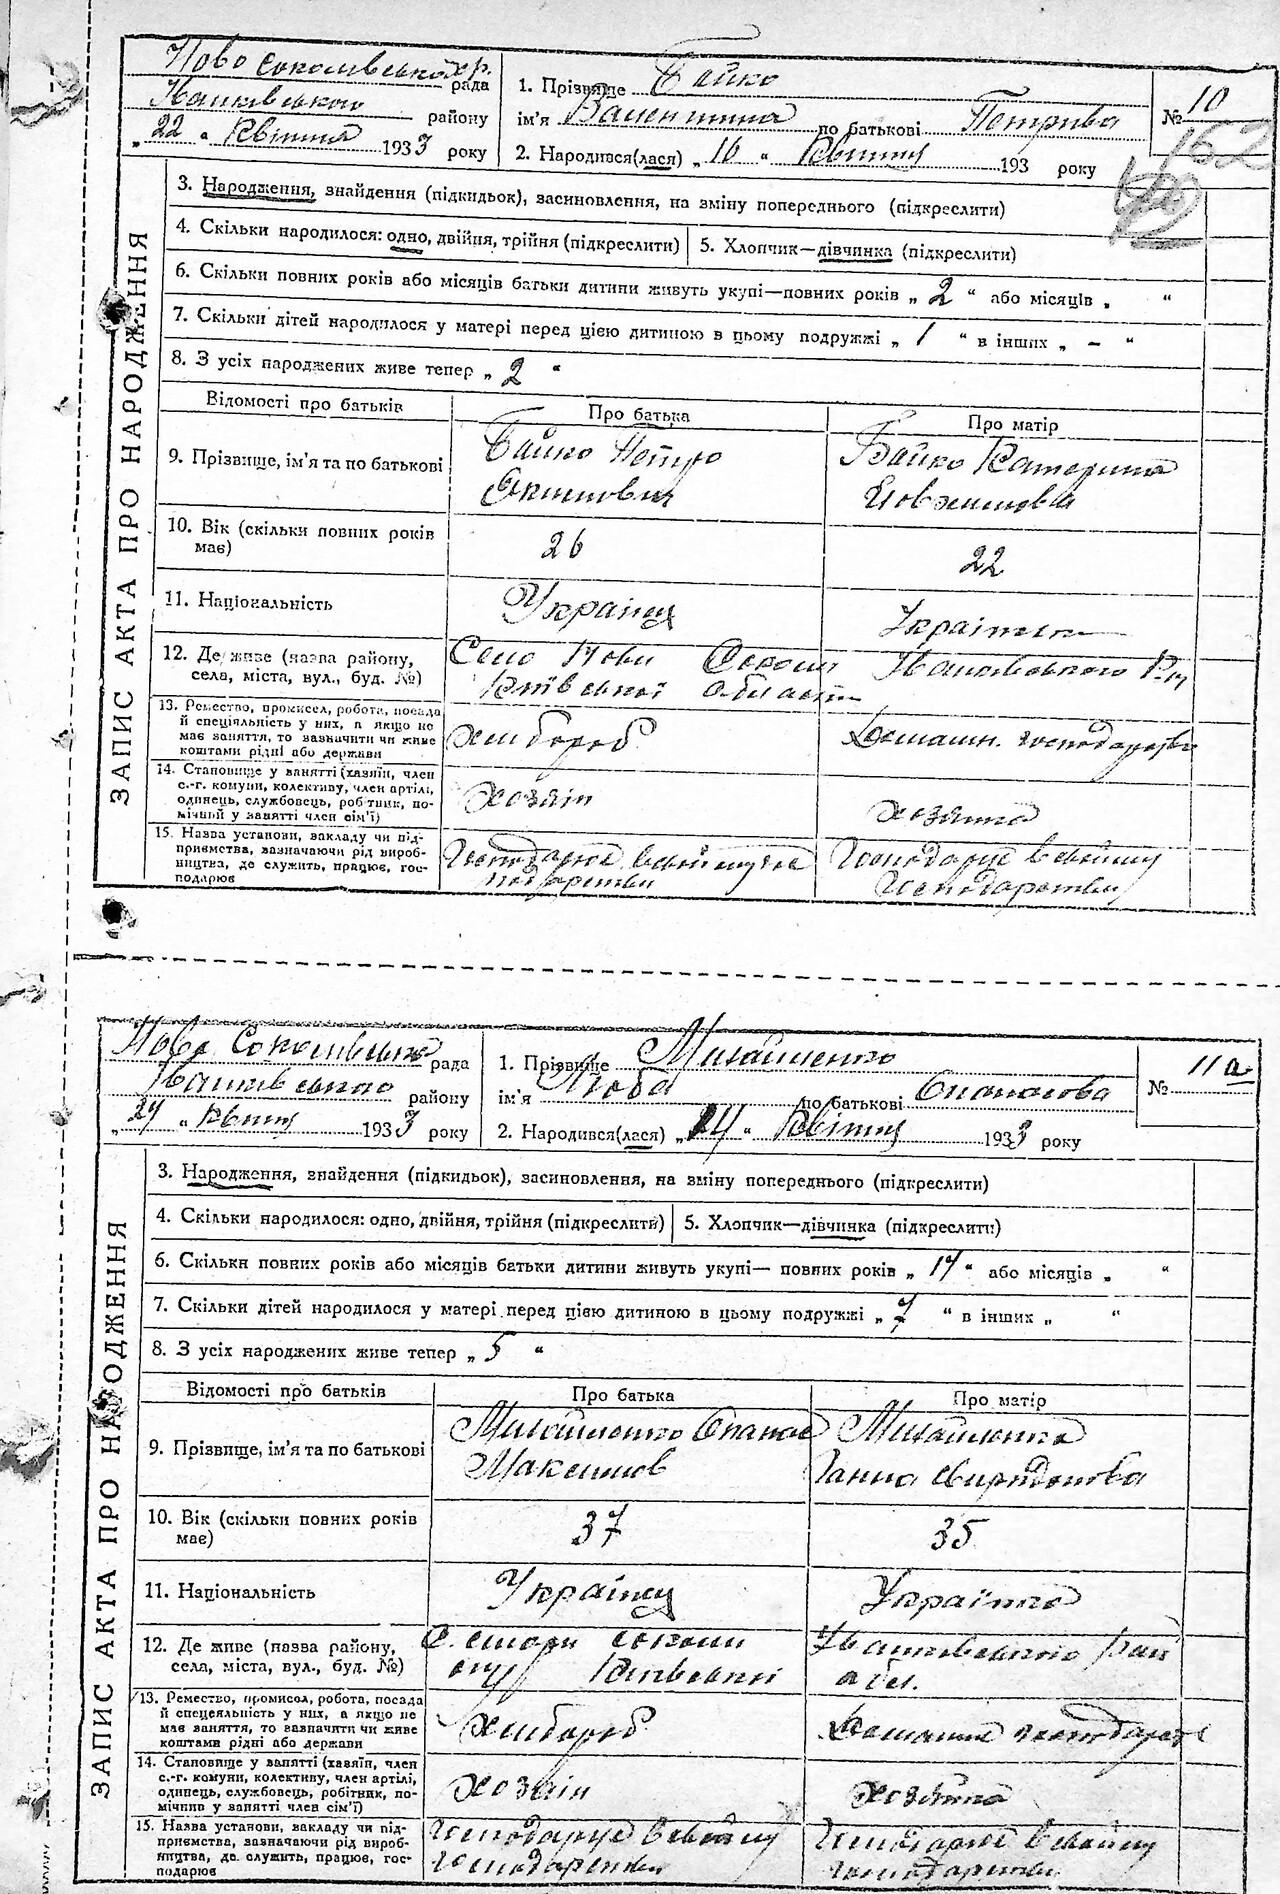 Ново Соколівська рада
Іванківського району
„22“ Квітня 1933 року
1. Прізвище Байко
ім'я Валентина по батькові Петрівна
2. Народився(лася) „16“ Квітня 193 року
№ 10
162
ЗАПИС АКТА ПРО НАРОДЖЕННЯ
3. Народження, знайдення (підкидьок), засиновлення, на зміну попереднього (підкреслити)
4. Скільки народилося: одно, двійня, трійня (підкреслити)
5. Хлопчик—дівчинка (підкреслити)
6. Скільки повних років або місяців батьки дитини живуть укупі—повних років „2“ або місяців „ “
7. Скільки дітей народилося у матері перед цією дитиною в цьому подружжі „1“ в інших „-“
8. З усіх народжених живе тепер „2“
Відомості про батьків
Про батька
Про матір
9. Прізвище, ім'я та по батькові
Байко Петро
Байко Катерина
10. Вік (скільки повних років має)
26
22
11. Національність
Українець
Українка
12. Де живе (назва району, села, міста, вул., буд. №)
Село Нови Соколи Іванківського Р-ну
Київської області
13. Ремество, промисел, робота, посада
й спеціяльність у них, а якщо не
має заняття, то зазначити чи живе
коштами рідні або держави
Хлібороб
Домашн. господарство
14. Становище у занятті (хазяїн, член
с.-г. комуни, колективу, член артілі,
одинець, службовець, робітник, по-
мічний у занятті член сім'ї)
Хозяїн
Хозяйка
15. Назва установи, закладу чи під-
приємства, зазначаючи рід вироб-
ництва, де служить, працює, гос-
подарює
Господарює в своїму го
подарстви
Господарює в своїму
господарстви
Ново Соколівська рада
Іванківського району
„24“ Квітня 1933 року
1. Прізвище Михайленко
ім'я Люба по батькові Опанасова
2. Народився(лася) „24“ Квітня 1933 року
№ 11а
ЗАПИС АКТА ПРО НАРОДЖЕННЯ
3. Народження, знайдення (підкидьок), засиновлення, на зміну попереднього (підкреслити)
4. Скільки народилося: одно, двійня, трійня (підкреслити)
5. Хлопчик—дівчинка (підкреслити)
6. Скільки повних років або місяців батьки дитини живуть укупі— повних років „17“ або місяців „ “
7. Скільки дітей народилося у матері перед цією дитиною в цьому подружжі „7“ в інших „ “
8. З усіх народжених живе тепер „5“
Відомості про батьків
Про батька
Про матір
9. Прізвище, ім'я та по батькові
Михайленко Опанас
Максимов
Михайленко
Ганна Свиридонова
10. Вік (скільки повних років має)
37
35
11. Національність
Українец
Українка
12. Де живе (назва району,
села, міста, вул., буд. №)
С. стари соколи Іванківського рай
ону Київської обл.
13. Ремество, промисол, робота, посада
й спецеяльність у них, а якщо не
має заняття, то зазначити чи живе
коштами рідні або держави
Хлібороб
Домашнє господарств
14. Становище у занятті (хазяїн, член
с.-г. комуни, колективу, член артілі,
одинець, службовець, робітник, по-
мічнип у занятті член сім'ї)
Хозяїн
Хозяйка
15. Назва установи, закладу чи під-
приємства, зазначаючи рід вироб-
ництва, де служить, працює, гос-
подарюе
Господарює в своїму
господарстви
Господарює в своїму
господарстви